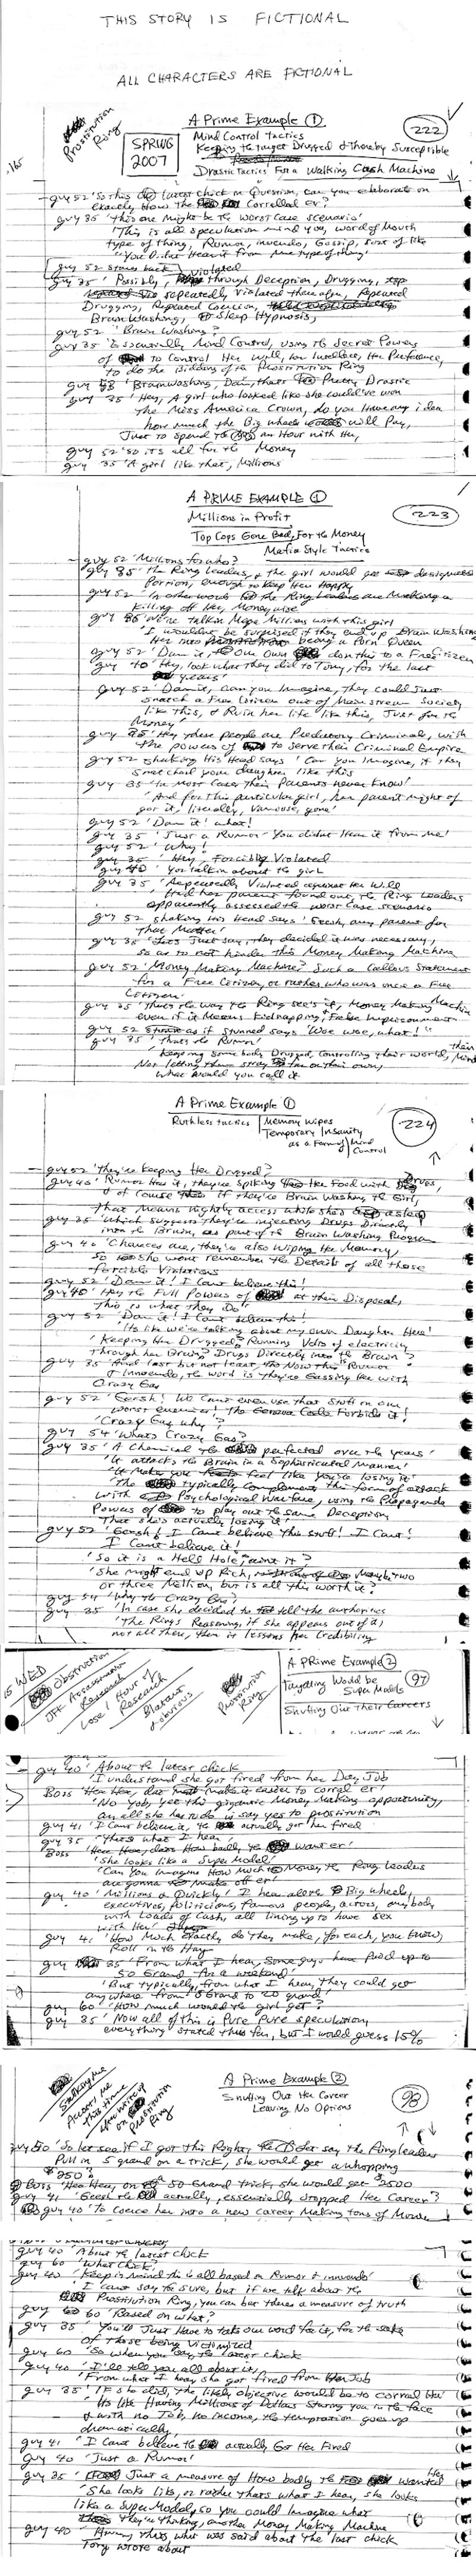 THIS STORY IS FICTIONAL
ALL CHARACTERS ARE FICTIONAL
Prostitution Ring
A Prime Example ①
222
SPRING 2007
Mind Control tactics
Keeping the target Drugged & thereby Susceptible
Drastic Tactics For a Walking Cash Machine
guy 52 'So this latest chick in Question, can you elaborate on
exactly, How the Corralled er?
guy 35 'this one might be the worst case scenario'
'This is all speculation mind you, word of Mouth
type of thing, Rumor, inuendo, Gossip, sort of like
'You Didnt Hear it from me type of thing'
guy 52 stares back
guy 35 'Possibly, through Deception, Drugging,
repeatedly violated thereafter, Repeated
Drugging, Repeated Coercion,
Brain Washing, Sleep Hypnosis,
guy 52 'Brain Washing?
guy 35 'Essentially Mind Control, using the Secret Powers
of to Control Her will, her Intellect, Her Preference,
to do the Bidding of the Prostitution Ring
guy 'Brainwashing, Dam, thats Pretty Drastic
guy 35 'Hey, A girl who looked like she could've won
the Miss America Crown, do you Have any idea
how much the Big wheels will Pay,
Just to Spend an Hour with Her,
guy 52 'So its all for the Money
guy 35 'A girl like that, Millions
A PRIME EXAMPLE ①
223
Millions in Profit
Top Cops Gone Bad, For the Money
Mafia Style Tactics
guy 52 'Millions for who?
guy 35 'the Ring Leaders, & the girl would get designated
Portion, enough to keep Her Happy
guy 52 'In other words the Ring Leaders are Making a
Killing off Her, Money wise
guy 35 'We're talkin Mega Millions with this girl
'I wouldn't be surprised if they end up Brain Washing
Her into being a Porn Queen
guy 52 'Dam it, our own doin this to a Free Citizen
guy 40 'Hey, look what they did to Tony, for the last
years'
guy 52 'Dam it, can you Imagine, they could Just
snatch a Free Citizen out of Main stream Society
like this, & Ruin her life like this, Just for the
Money'
guy 35 'Hey these people are Predatory Criminals, with
the powers of to serve their Criminal Empire
guy 52 Shaking His Head says 'Can you Imagine, if they
snatched your daughter like this
guy 35 'In Most Cases their Parents never Know!
'And for this particular girl, her parent might of
got it, literally, Vamoose, gone'
guy 52 'Dam it! what!
guy 35 'Just a Rumor' You didnt Hear it from me!
guy 52 'Why!
guy 35 'Hey, Forcibly Violated
guy 40 'You talkin about the girl
guy 35 'Repeatedly Violated against Her Will
'Had her parent found out, the Ring Leaders
apparently assessed the worst Case scenario
guy 52 Shaking his Head says 'Geesh, any parent for
That Matter'
guy 35 'Lets Just say, they decided it was necessary,
so as to not hinder this Money Making Machine
guy 52 'Money Making Machine? Such a Callous Statement
for a Free Citizen, or rather who was once a Free
Citizen'
guy 35 'Thats the way the Ring see's it, Money Making Machine
even if it Means Kidnapping, False Imprisonment
guy 52 as if stunned says 'Woe woe, what!"
guy 35 'Thats the Rumor'
Keeping some body Drugged, Controlling their world, their Mind
Not letting them stray on their own,
what would you call it
A Prime Example ①
224
Ruthless tactics
Memory Wipes
Temporary Insanity
as a Form of Mind Control
guy 52 'They're Keeping Her Drugged?
guy 40 'Rumor Has it, they're spiking Her Food with Drugs,
& of course If they're Brain Washing the Girl,
that Means nightly access while she's asleep
guy 35 'Which suggests they're injecting Drugs Directly
into the Brain, as part of the Brain Washing Program
guy 40 'Chances are, they're also Wiping Her Memory,
so she wont remember the Details of all those
forcible Violations
guy 52 'Dam it! I Cant believe this!
guy 40 'Hey the Full Powers of at their Disposal,
This is what they Do'
guy 52 'Dam it! I Cant believe this!
'Its like we're talking about my own Daughter Here!
'Keeping Her Drugged? Running Volts of electricity
through her Brain? Drugs Directly into the Brain?
guy 35 'And last but not least, the Now this is Rumor
& Innuendo, the word is they're Gassing Her with
Crazy Gas
guy 52 'Geesh! We Cant even use that stuff on our
worst enemies! The Geneva Code Forbids it!
'Crazy Gas why?
guy 54 'Whats Crazy Gas?
guy 35 'A Chemical the perfected over the years'
'It attacks the Brain in a Sophisticated Manner'
'It Make you feel like you're losing it'
'The typically compliment this form of attack
with Psychological Warfare, using the Propaganda
Powers of to play out the same Deception,
That she's actually losing it!
guy 52 'Geesh! I Cant believe this stuff! I Cant!
I Cant believe it!
'So it is a Hell Hole, aint it?
'She might end up Rich, Maybe two
or three Million, but is all this worth it?
guy 54 'Why the Crazy Gas?
guy 35 'In case she decided to tell the authorities
'The Ring's Reasoning, if she appears out of it,
not all there, then it lessens her Credibility
WED
Obstruction
JFK Assassination
Research
Lose Hour of
Research
Blatant
& obvious
Prostitution
Ring
A PRime Example ②
97
Targetting Would be
Super Models
Snuffing Out Their Careers
guy 40 'About the latest chick
'I understand she got fired from her Day Job
Boss 'Hee Hee, dat make it easier to corral er!
'No Job, yet this gigantic Money Making opportunity,
an all she has to do is say yes to prostitution
guy 41 'I Cant believe it, the actually got her fired
guy 35 'Thats what I hear,
Boss 'Hee Hee, dats How badly, the want er!
'She looks like a Super Model'
'Can you Imagine How Much Money the Ring Leaders
are gonna Make off er!
guy 40 'Millions & Quickly! I hear alone Big wheels,
executives, politicians, famous people, actors, any body
with Loads of Cash, all lining up to have sex
with Her'
guy 41 'How Much exactly, do they make, for each, you know,
Roll in the Hay
guy 35 'From what I hear, Some guys have paid up to
50 Grand for a weekend'
'But typically, from what I hear, they could get
any where from 5 Grand to 20 grand'
guy 60 'How much would the girl get?
guy 35 'Now all of this is Pure Pure speculation,
everything stated thus far, but I would guess 15%
Stalking me
Access me
this time
after writing
on Prostitution
Ring
A Prime Example ②
98
Snuffing Out Her Career
Leaving No Options
guy 50 'So let see if I got this Right, Lets say the Ringleaders
Pull in 5 grand on a trick, she would get a whopping
$750?
Boss 'Hee Hee, on 50 Grand trick, she would get $7500
guy 41 'Geesh the actually, essentially stopped Her Career?
guy 40 'To Coerce her into a new career Making tons of Money
guy 40 'About the latest chick
guy 60 'What Chick?
guy 40 'Keep in mind this is all based on Rumor & innuendo
'I cant say for sure, but if we talk about the
Prostitution Ring, you can bet theres a measure of truth
guy 60 'Based on what?
guy 35 'You'll Just Have to take our word for it, for the sake
of Those being victimized
guy 60 'So when you say the latest chick
guy 40 'I'll tell you all about it,
'From what I hear, she got fired from Her Job
guy 35 'If she did, the likely objective would be to corral Her
'Its like Having Millions of Dollars staring you in the face
& with no Job, no income, the temptation goes up
dramatically,
guy 41 'I Cant believe the actually Got Her Fired
guy 40 'Just a Rumor'
guy 35 'Just a measure of How badly the wanted Her
'She looks like, or rather thats what I hear, she looks
like a Super Model, so you could Imagine what
They're thinking, another Money Making Machine
guy 40 'Humm, thats what was said about the last chick
Tony wrote about